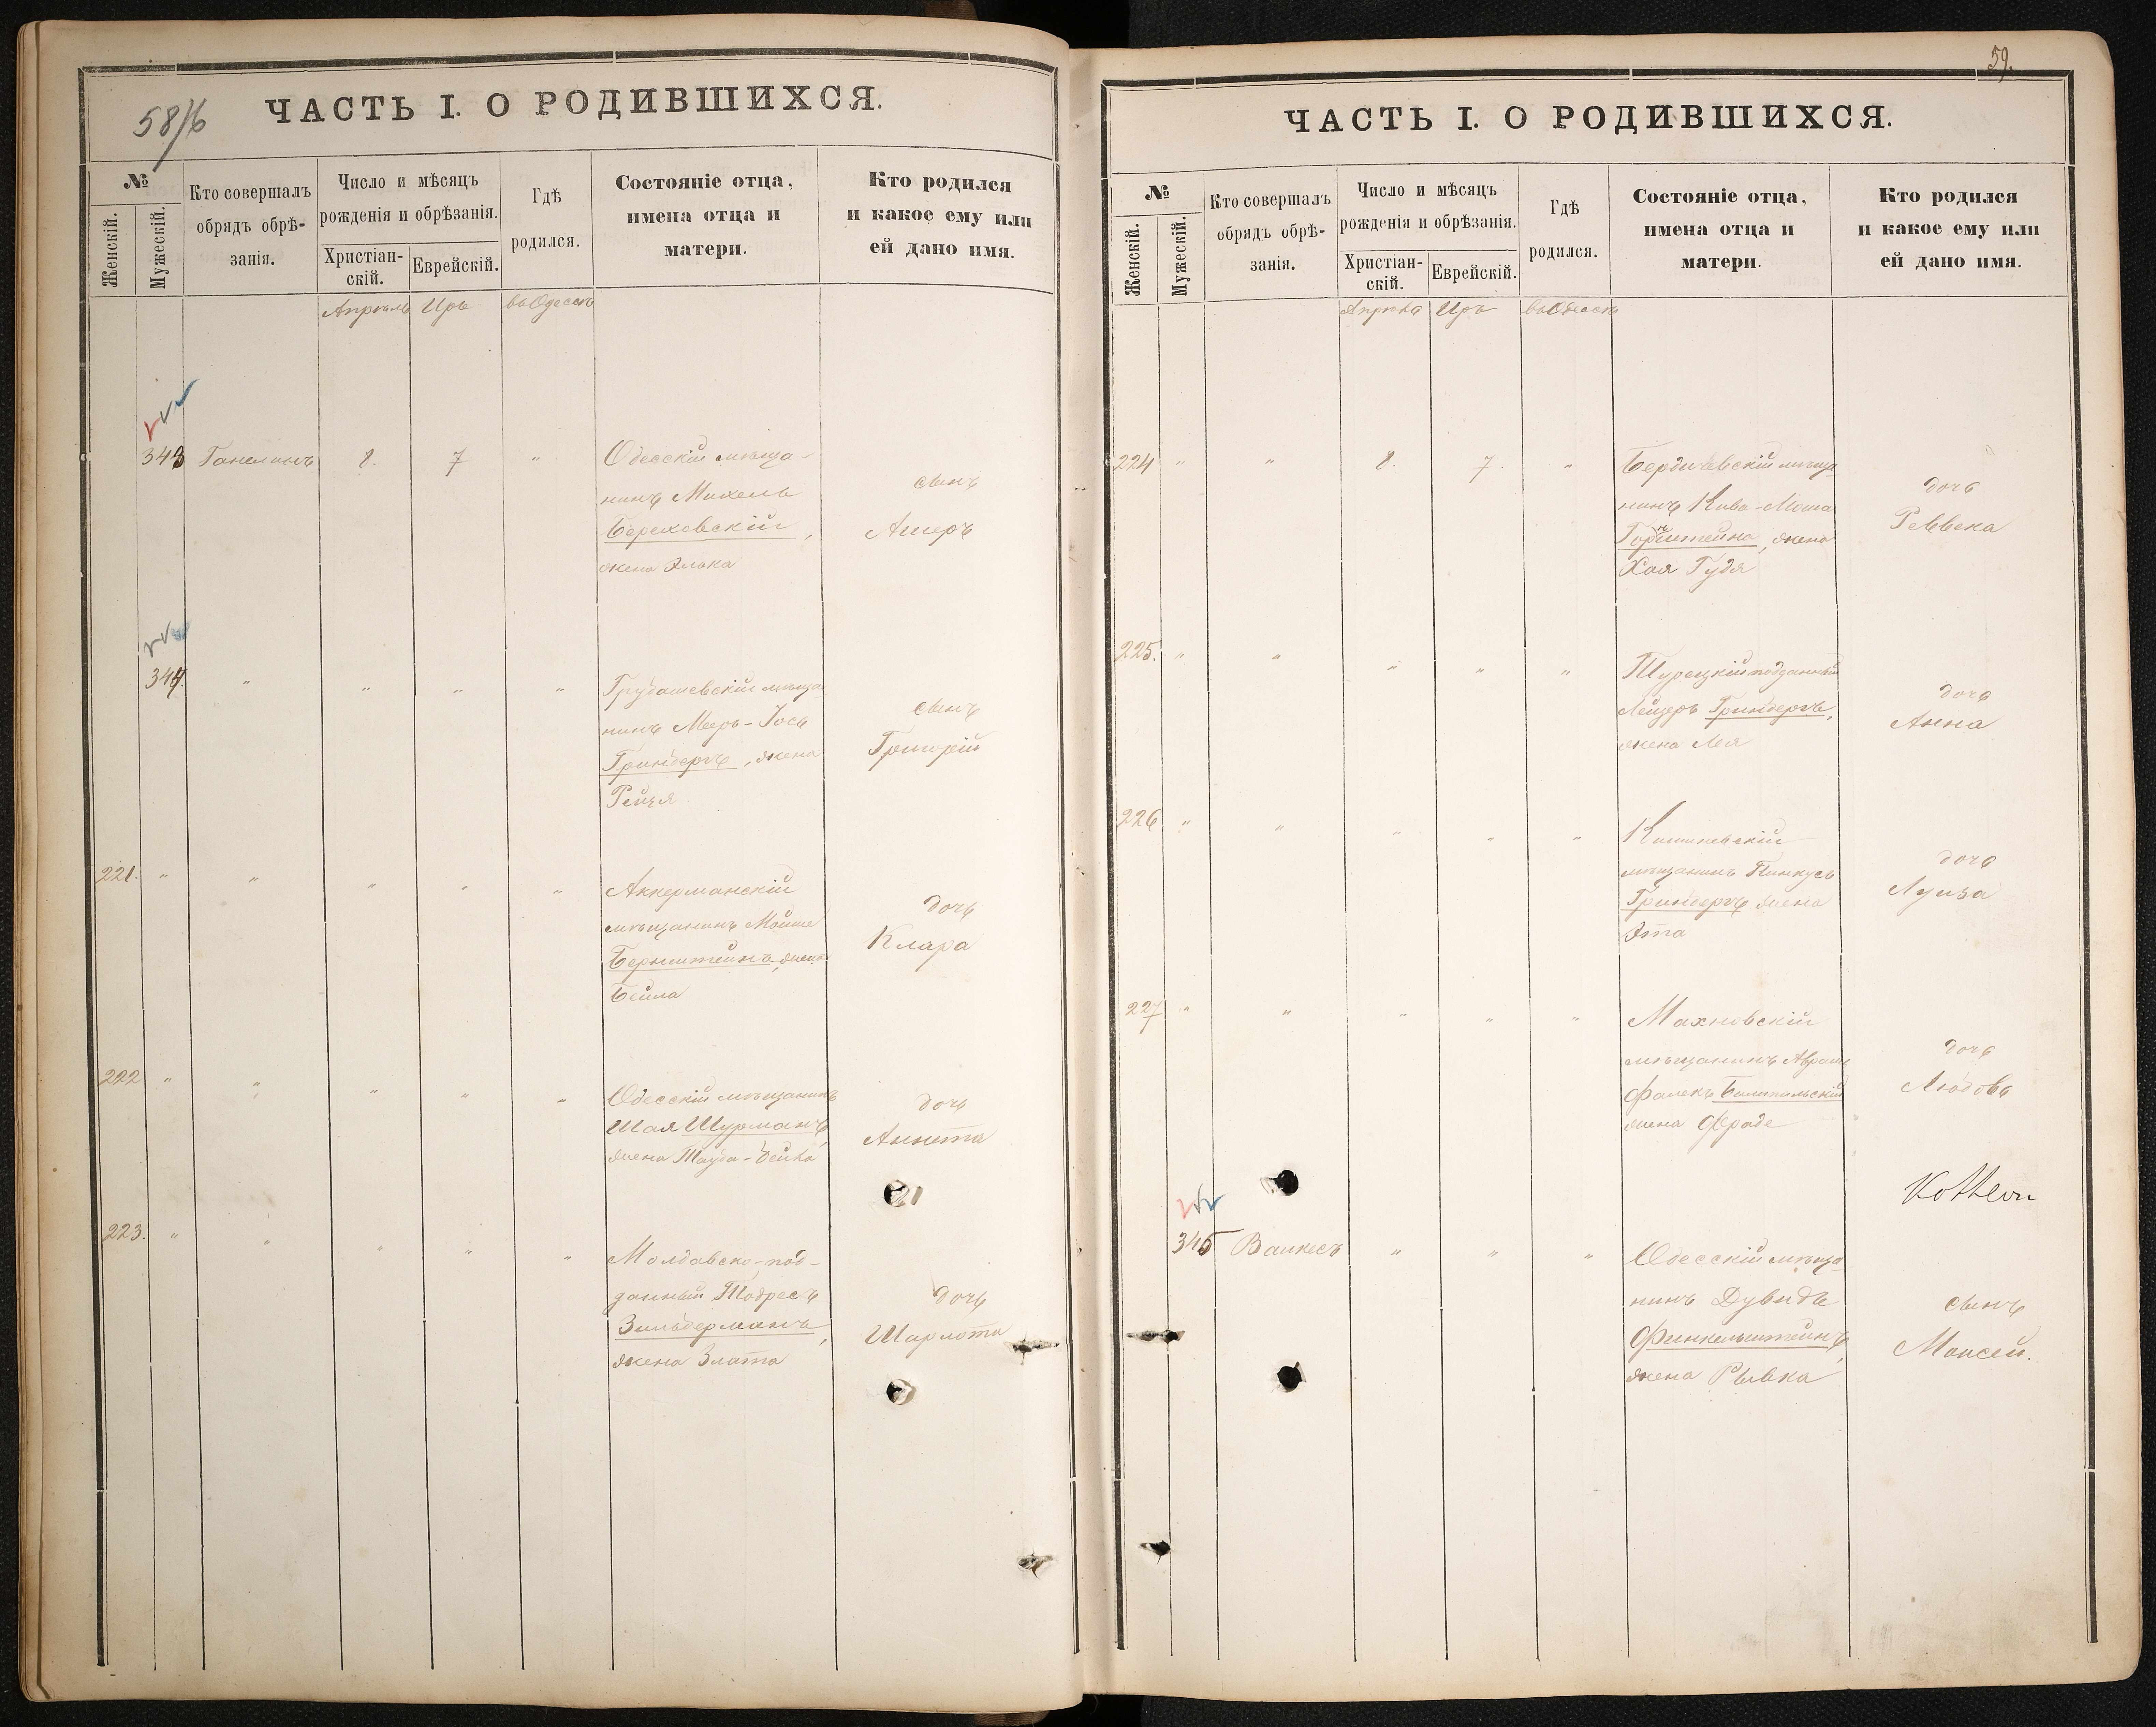 58/б
ЧАСТЬ I. О РОДИВШИХСЯ.
№
Женскій.
Мужескій.
Кто совершалъ
обрядъ обрѣ-
занія.
Число и мѣсяцъ
рожденія и обрѣзанія.
Христіан-
скій.
Еврейскій.
Гдѣ
родился.
Состояніе отца,
имена отца и
матери.
Кто родился
и какое ему или
ей дано имя.
Апрѣль Иръ въ Одессѣ
343 Ганелинъ 8. 7 " Одесскій мѣща-
нинъ Михель
Береховскій,
жена Элька
сынъ
Ашеръ
344. " " " "
нинъ Мееръ-Іось
Гринбергъ, жена
Рейзя
сынъ
Григорій
221. " " " " " Аккерманскій
мѣщанинъ Мойше
Бернштейнъ, жена
Бейла
дочь
Клара
222 " " " " " Одесскій мѣщанинъ
Шая Шурманъ,
жена Тауба-Бейла
дочь
Аннета
223. " " " " " Молдавско-под-
данный Тодресъ
Зильберманъ,
жена Злата
дочь
Шарлота
59.
ЧАСТЬ I. О РОДИВШИХСЯ.
№
Женскій.
Мужескій.
Кто совершалъ
обрядъ обрѣ-
занія.
Число и мѣсяцъ
рожденія и обрѣзанія.
Христіан-
скій.
Еврейскій.
Гдѣ
родился.
Состояніе отца,
имена отца и
матери.
Кто родился
и какое ему или
ей дано имя.
Апрѣль Иръ въ Одессѣ
224 " " 8. 7. " Бердичевскій мѣща-
нинъ Кива-Моша
жена
Хая Гудя
дочь
Реввека
225. " " " " " Турецкій подданный
Лейзеръ Гринбергъ,
жена Лея
дочь
Анна
226 " " " " " Кишиневскій
мѣщанинъ Пинкусъ
Гринбергъ жена
Эта
дочь
Луиза
227 " " " " " Махновскій
мѣщанинъ Аврамъ
Фалекъ
жена Фраде
дочь
Любовь
345 Валкесъ " " " Одесскій мѣща-
нинъ Дувидъ
Финкельштейнъ,
жена Рывка
сынъ
Моисей.